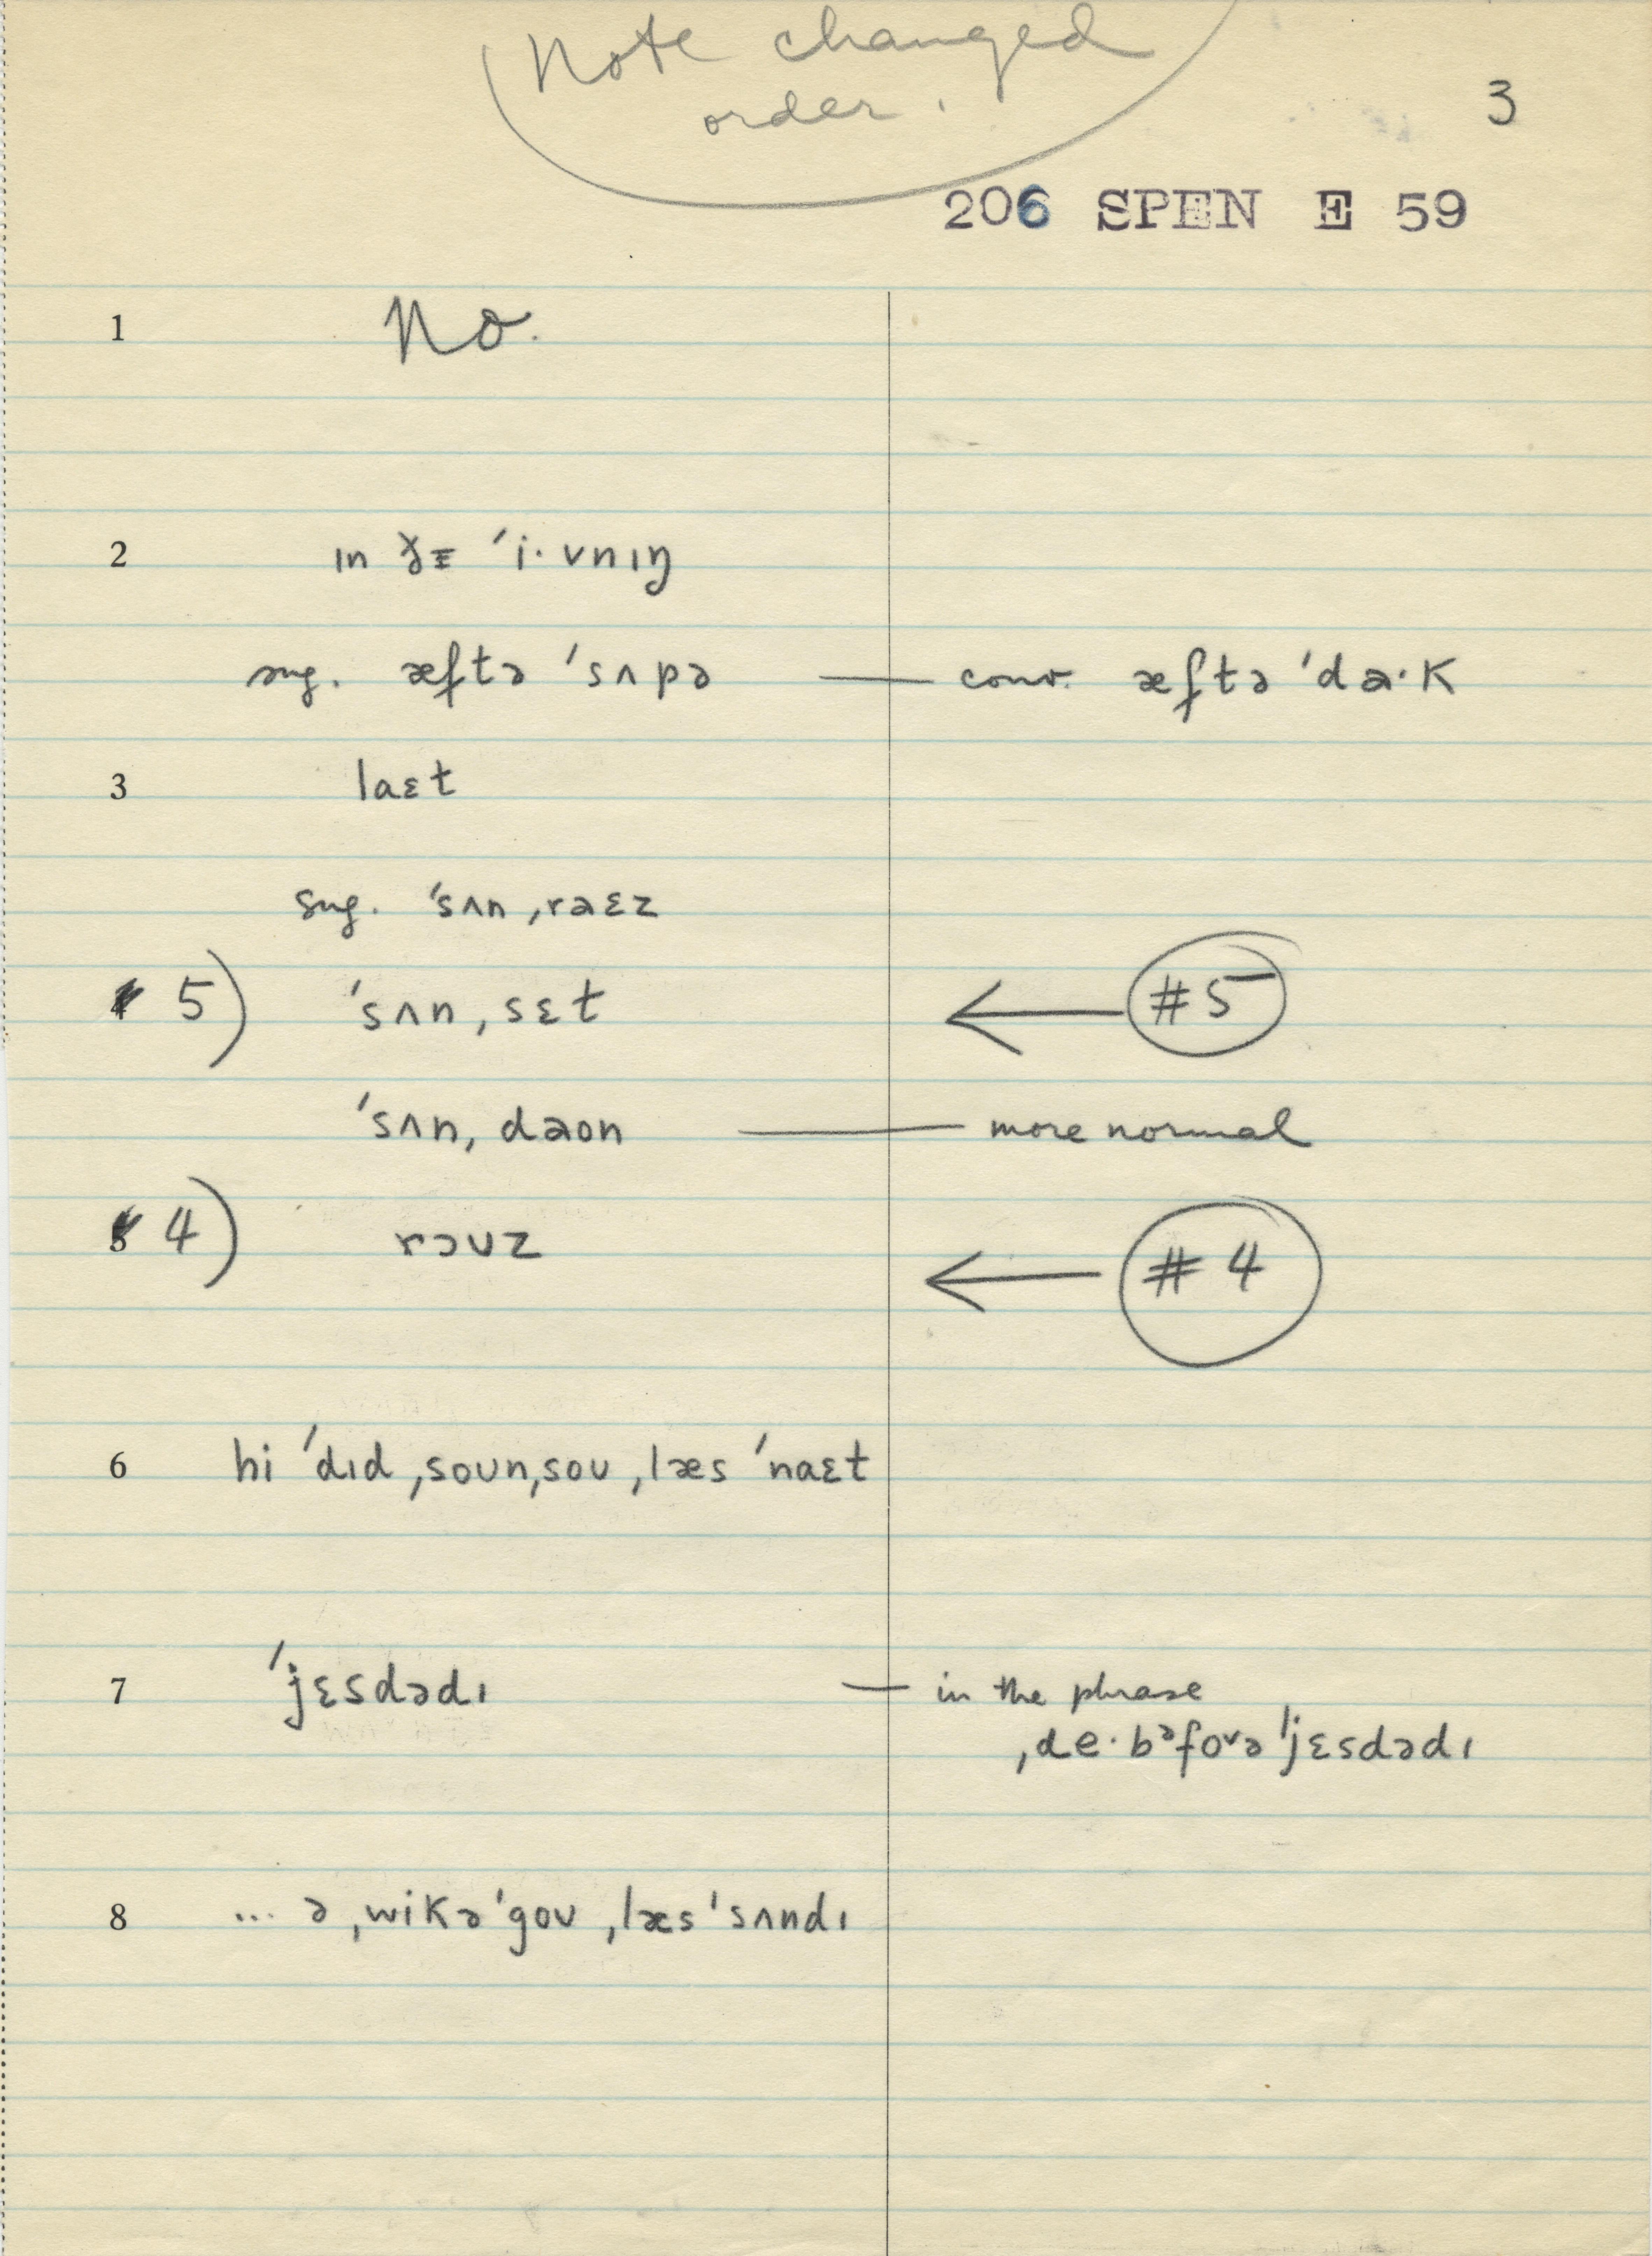 Note changed
order.
3
206 SPEN E 59
1 No.
2 ın ðɪ ˈi·vnıŋ
sug. æftə ˈsʌpə — conv. æftə ˈda·k
3 laɛt
sug. ˈsʌn ˌraɛz
5) ˈsʌn ˌsɛt ← #5
ˈsʌn ˌdaon — more normal
4) rɔuz ← #4
6 hi ˈdıd ˌsoun ˌsou ˌlæs ˈnaɛt
7 ˈjɛsdədı — in the phrase
ˌde·bᵊfoᵛə ˈjɛsdədı
8 ... ə ˌwikə ˈgou ˌlæs ˈsʌndı